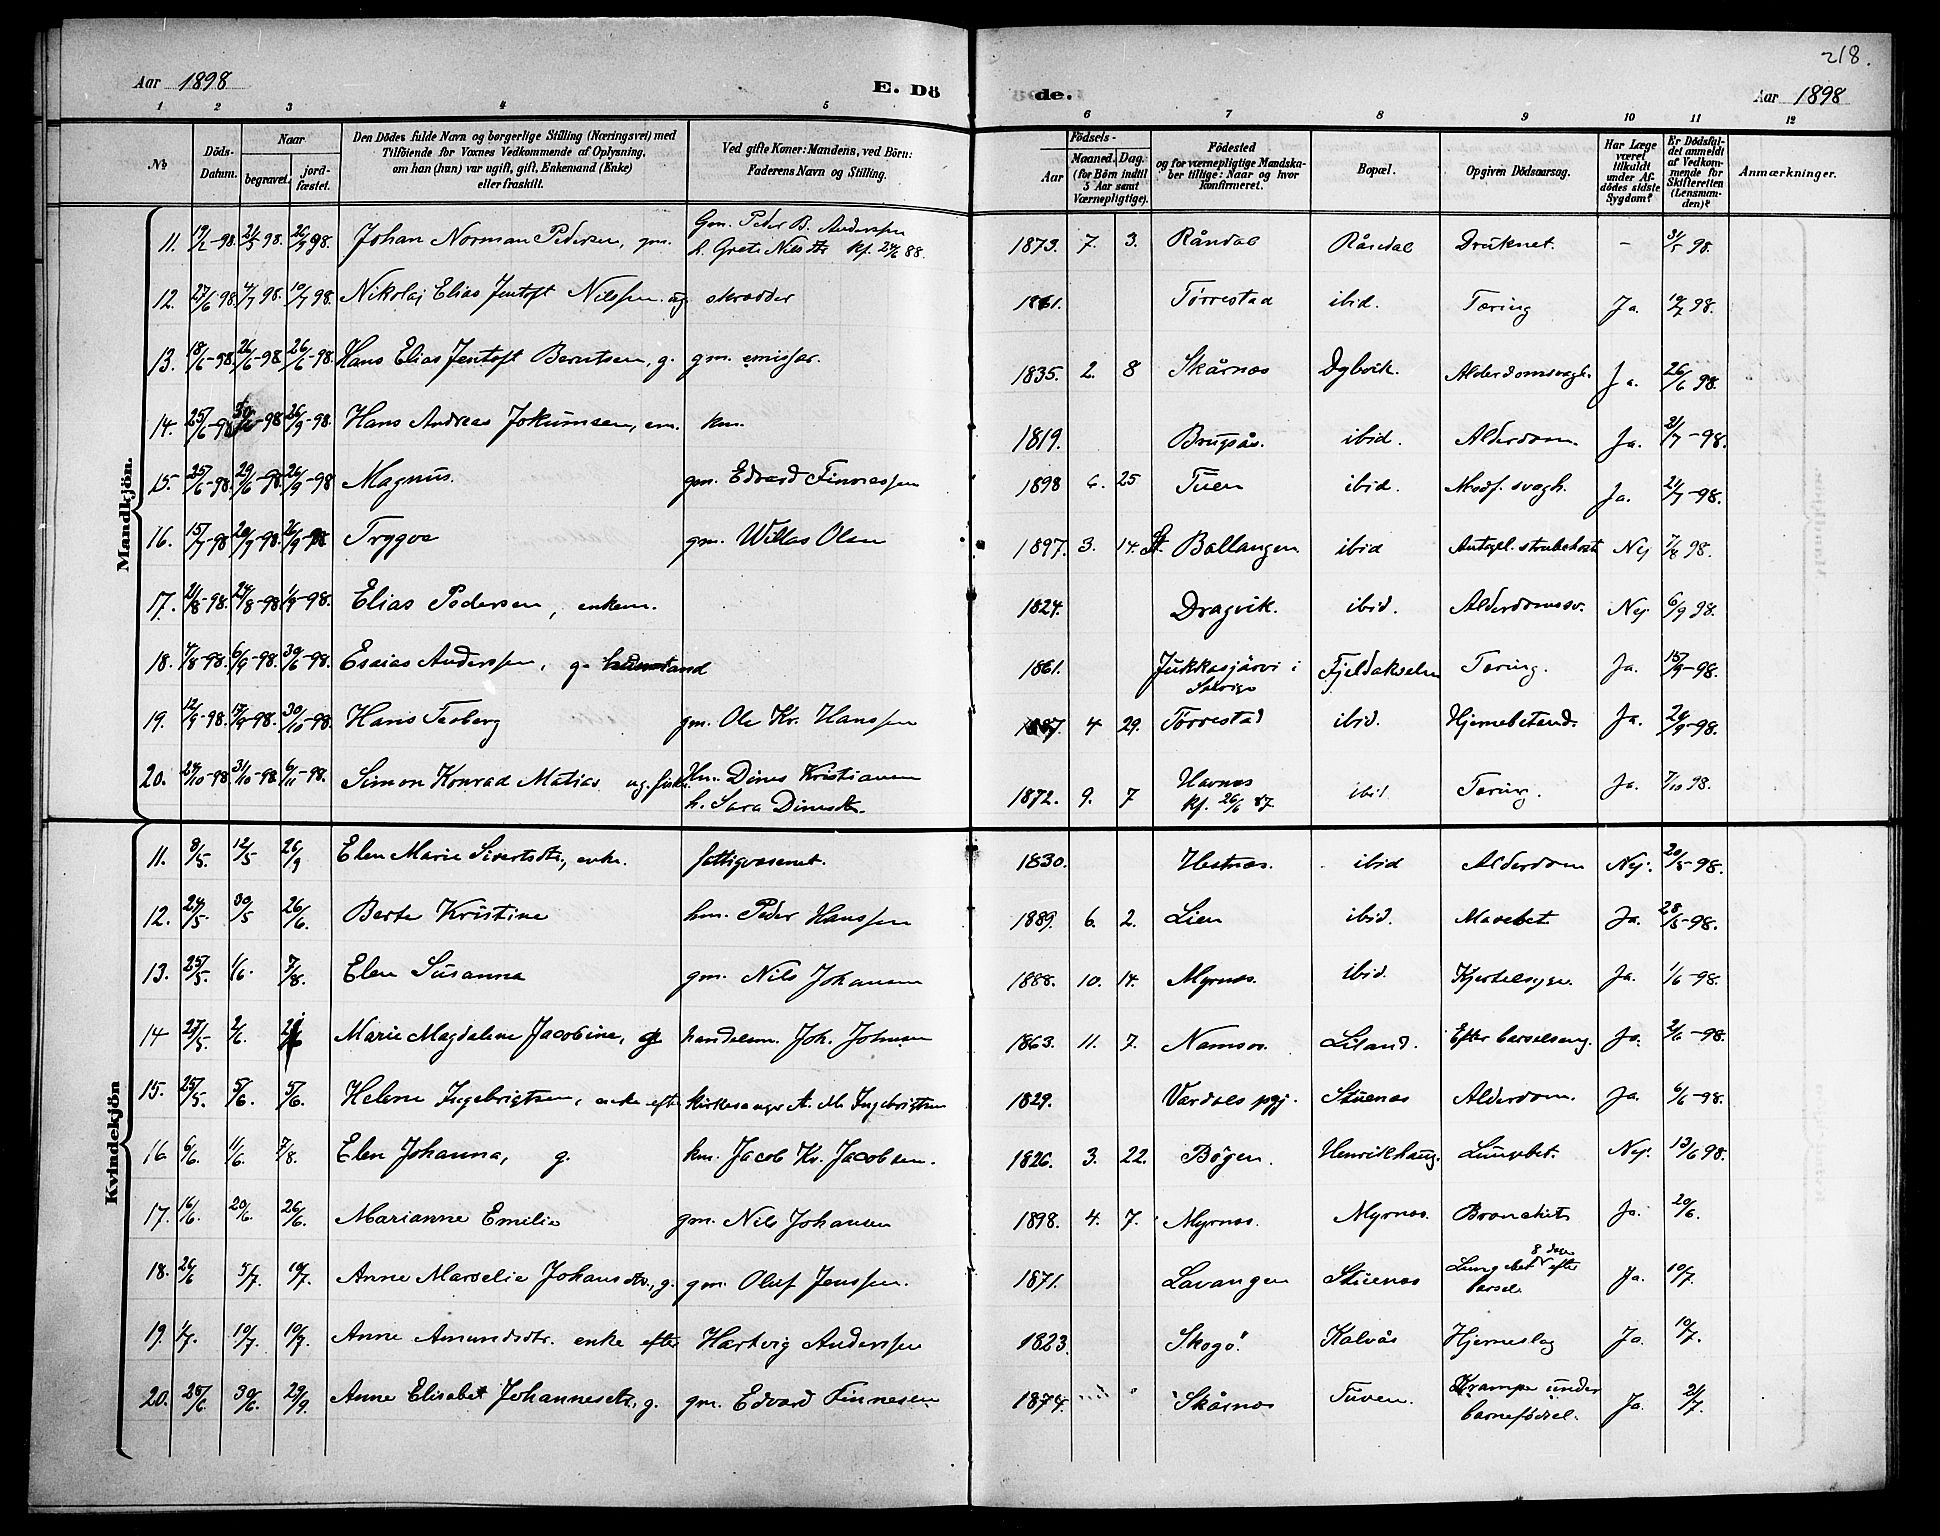 218.
Aar 1898 E. Dö de. Aar 1898
1 2 3 4 5 6 7 8 9 10 11 12
No Döds-Datum. Naar begravet. jord-fæstet. Den Dödes fulde Navn og borgerlige Stilling (Næringsvei) med Tilföiende for Voxnes Vedkommende af Oplysning, om han (hun) var ugift, gift, Enkemand (Enke) eller fraskilt. Ved gifte Koner: Mandens, ved Börn: Faderens Navn og Stilling. Födsels- Aar Maaned. Dag. (for Börn indtil 5 Aar samt Værnepligtige). Födested og for værnepligtige Mandska-ber tillige: Naar og hvor konfirmeret. Bopæl. Opgiven Dödsaarsag. Har Læge været tilkaldt under Af-dödes sidste Sygdom? Er Dödsfal-det anmeldt af Vedkom-mende for Skifteretten (Lensman-den)? Anmærkninger.
Mandkjön.
11. 98. 98. 26/9 98. Johan Norman Pedersen, gm. Gm. Peder B. Anderssen h. Grete Nilsdtr kf. 24/6 88. 1873. 7. 3. Råndal Råndal Druknet. - 98.
12. 27/6 98. 4/7 98. 10/7 98. Nikolai Elias Jentoft Nilssen. ug skrædder 1861. Tørrestad ibid. Tæring Ja. 98.
13. 18/6-98. 26/6-98. 26/6-98. Hans Elias Jentoft Berntsen, g. gm. emissær. 1835. 2. 8 Skårnes Dybvik. Alderdomsvagh. Ja. 26/6 98.
14. 25/6-98 -98 26/9-98. Hans Andreas Jokumsen, em. km. 1819. ibid. Alderdom. Ja. 21/7-98.
15. 25/6-98. 29/6-98 26/9-98 Magnus. gm. Edvard Finnessen 1898 6. 25 Tuen ibid. Medf. svagh. Ja. 21/7-98.
16. 15/7-98 20/7-98. 26/9-98 Trygve gm. Willas Olsen 1897. 3. 14. Ballangen ibid Antagel. strubehoste Nej 7/8 98.
17. 21/8-98. 24/8-98 1/9-98. Elias Pedersen, enkem. 1824. Dragvik. ibid. Alderdomssv. Nej. 6/9 98.
18. -98. 6/9-98. -98. Esaias Anderssen, g. 1861. Jukkasjärvi i Sverige Fjeldakselen Tæring. Ja. 15/9-98.
19. 12/9-98. 17/9-98. 30/10-98. Hans Teoberg gm. Ole Kr. Hanssen 4 29. Tørrestad ibid. Hjernebetænd. Ja. 24/9-98.
20. 24/10-98. 31/10-98. 6/11-98. Simon Konrad Matias ug. fisker. Hm. Dines Kristiansen h. Sara Dinesdtr. 1872. 9. 7 Havnes kf. 26/6 87. ibid. Tæring. Ja. 7/10 98.
Kvindekjön
11. 8/5. 12/5 26/9 Elen Marie Sivertsdtr., enke. fattigvæsenet. 1830. Hestnes. ibid Alderdom Nej. 20/5-98.
12. 24/5. 30/5 26/6. Berte Kristine hm. Peder Hanssen 1889. 6. 2. Lien ibid. Mavebet. Ja. 28/5-98.
13. 25/5. 1/6. 7/8. Elen Susanna gm. Nils Johansen 1888. 10. 14. Myrnes. ibid. Kjertelsyge. Ja. 1/6-98.
14 27/5. 2/6. Marie Magdalene Jacobine, g handelsm. Joh. Johnsen 1863. 11. 7. Namsos. Liland. Efter barselseng. Ja. 2/6-98.
15. 25/5. 5/6. 5/6. Helene Ingebrigtsen, enke efter kirkesanger A. M. Ingebrigtsen 1829. Værdals pgj. Stuenes Alderdom. Ja. 6/6-98.
16. 6/6. 11/6. 7/8. Elen Johanna, g. km. Jacob Kr. Jacobsen. 1826. 3. 22. Bögen. Henrikhaug. Lungebet. Nej. 13/6 98.
17. 16/6. 20/6. 26/6. Marianne Emilie gm. Nils Johansen 1898. 4. 7. Myrnes. Myrnes. Bronchit Ja. 20/6.
18. 26/6 5/7. 10/7. Anne Marselie Johansdtr., g. gm. Oluf Jenssen. 1871. Lavangen Stuenes Lungebet 8 dage efter barsel. Ja. 10/7.
19. 1/7. 10/7. 10/7. Anne Amundsdtr. enke efter Hartvig Anderssen 1823. Skogö Kalvås Hjerneslag Ja. 10/7.
20. 25/6. 30/6. 29/9. Anne Elisabet Johannesdtr., g. gm. Edvard Finnesen 1874. Skårnes Tuven. Krampe under barnefødsel. Ja. 21/7.